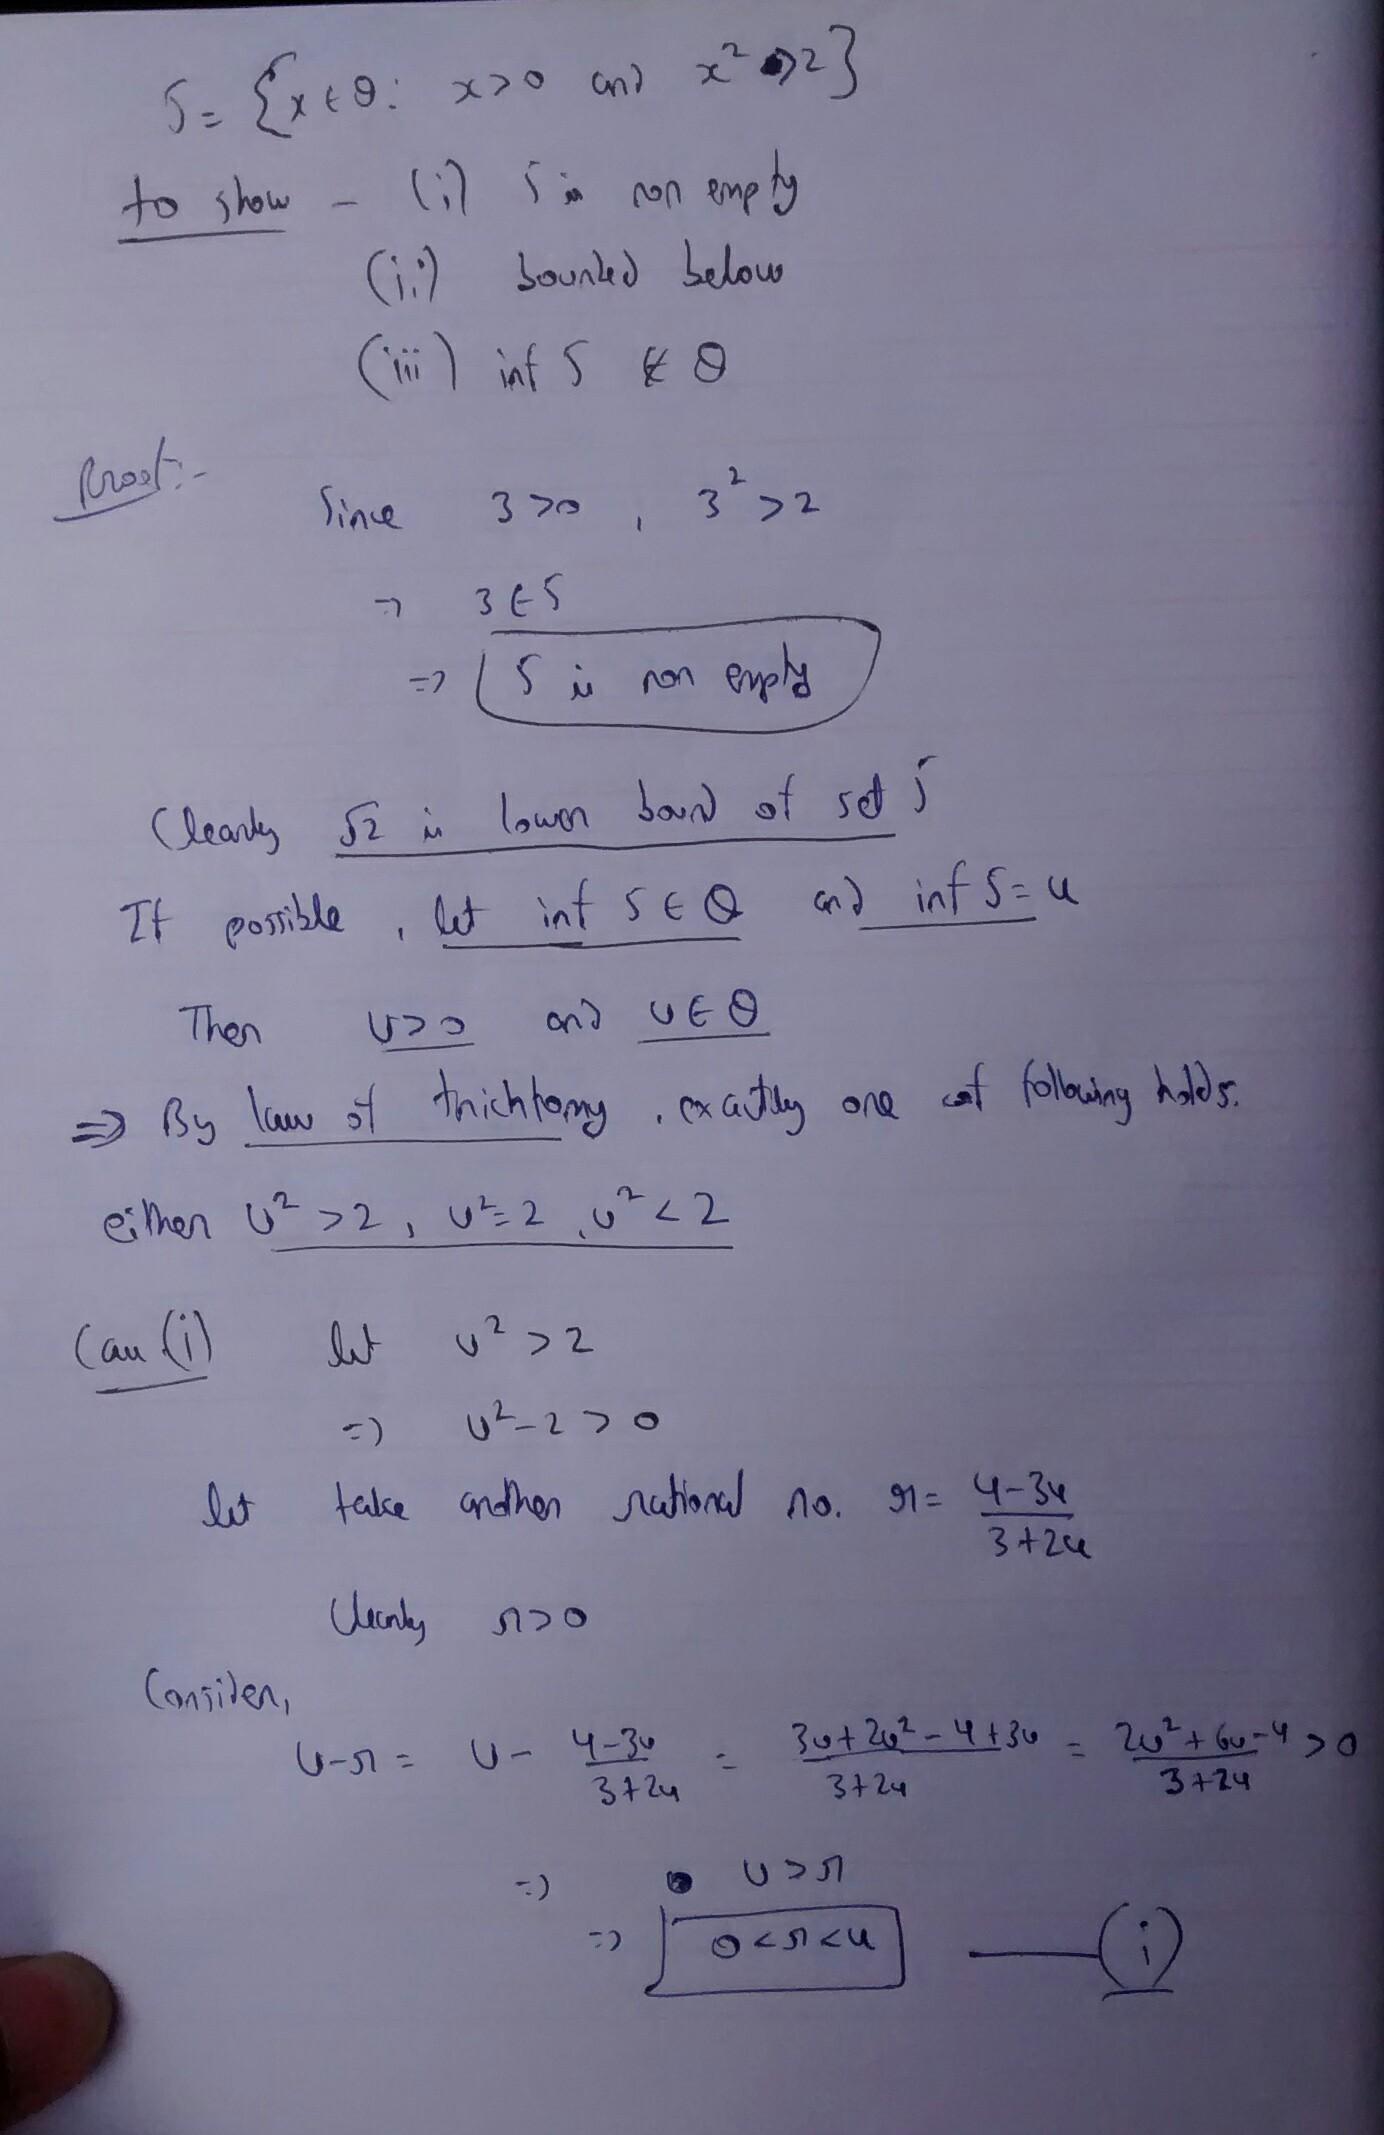 S = {x ∈ Q : x > 0 and x² > 2}
to show - (i) S is non empty
(ii) bounded below
(iii) inf S ∉ Q
Proof:-
Since 3 > 0 , 3² > 2
⇒ 3 ∈ S
⇒ S is non empty
Clearly √2 is lower bound of set S
If possible , let inf S ∈ Q and inf S = u
Then u > 0 and u ∈ Q
⇒ By law of trichtomy , exactly one of following holds.
either u² > 2 , u² = 2 , u² < 2
Case (i) let u² > 2
⇒ u² - 2 > 0
let take another rational no. r = (4-3u)/(3+2u)
Clearly r > 0
Consider,
u - r = u - (4-3u)/(3+2u) = (3u + 2u² - 4 + 3u)/(3+2u) = (2u² + 6u - 4)/(3+2u) > 0
⇒ u > r
⇒ 0 < r < u — (i)